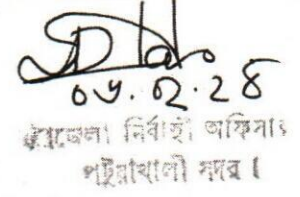 ০৬.০২.২৪
উপজেলা নির্বাহী অফিসার
পটুয়াখালী সদর।